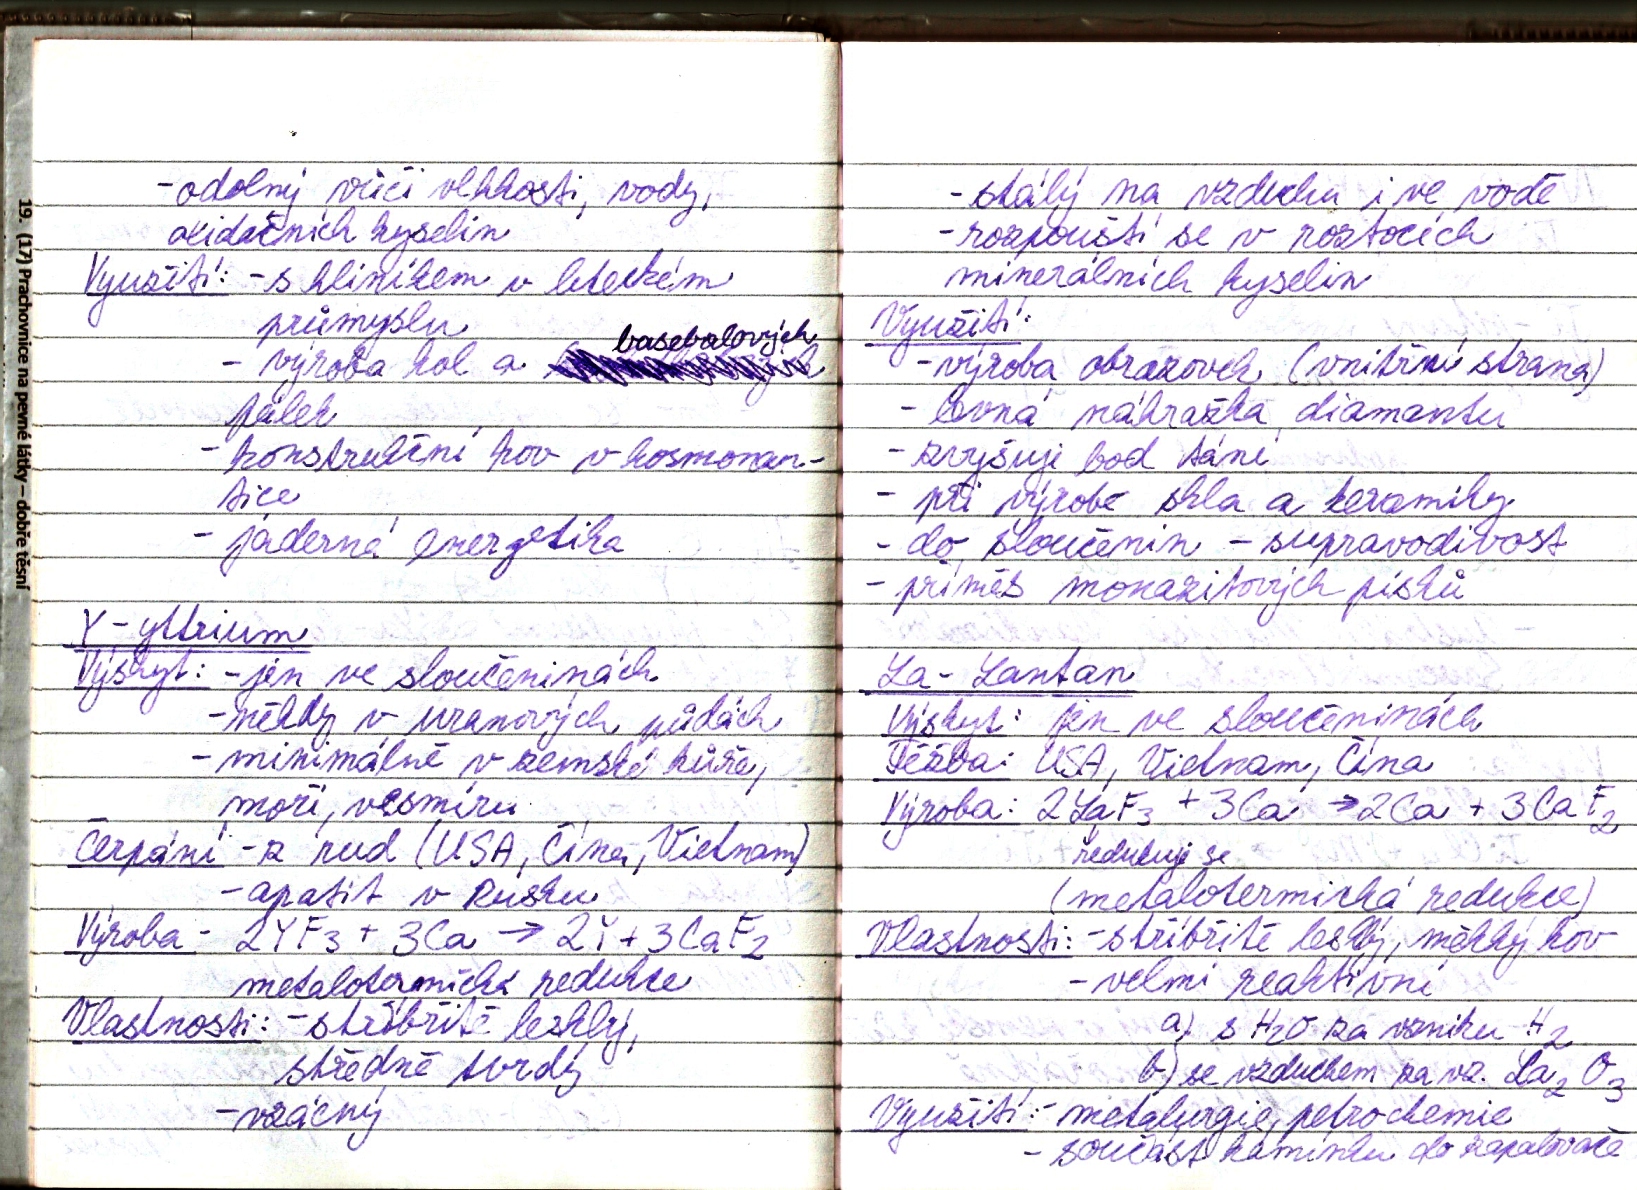 19. (17) Prachovnice na pevné látky – dobře těsní
- odolný vůči vlhkosti, vody,
oxidačních kyselin
Využití: - s hliníkem v leteckém
průmyslu
- výroba kol a basebalových
pálek
- konstrukční kov v kosmonau-
tice
- jaderná energetika
Y - yttrium
Výskyt: - jen ve sloučeninách
- někdy v uranových půdách
- minimálně v zemské kůře,
moři, vesmíru
Čerpání - z rud (USA, Čína, Vietnam)
- apatit v Rusku
Výroba - 2YF3 + 3Ca → 2Y + 3CaF2
metalotermická redukce
Vlastnosti: - stříbřitě lesklý,
středně tvrdý
- vzácný
- stálý na vzduchu i ve vodě
- rozpouští se v roztocích
minerálních kyselin
Využití:
- výroba obrazovek (vnitřní strana)
- levná náhražka diamantu
- zvyšuji bod tání
- při výrobě skla a keramiky
- do sloučenin - supravodivost
- příměs monazitových písků
La - Lantan
Výskyt: jen ve sloučeninách
Těžba: USA, Vietnam, Čína
Výroba: 2LaF3 + 3Ca → 2Ca + 3CaF2
redukuje se
(metalotermická redukce)
Vlastnosti: - stříbřitě lesklý, měkký kov
- velmi reaktivní
a) s H2O za vzniku H2
b) se vzduchem za vz. La2O3
Využití: - metalurgie, petrochemie
- součást kamínku do zapalovače